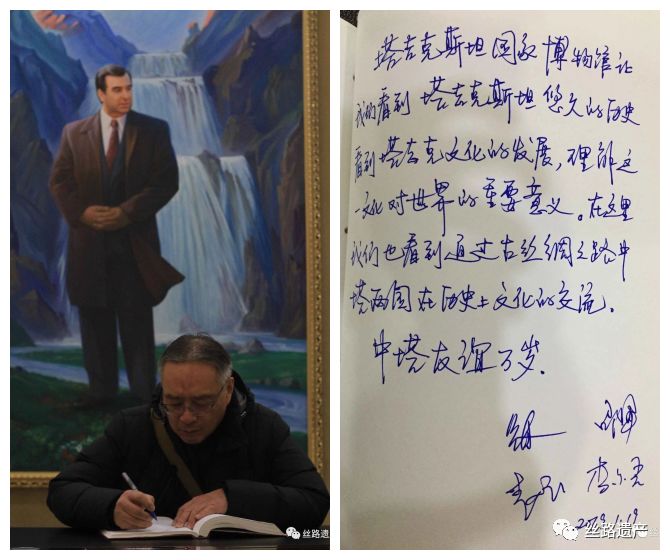 塔吉克斯坦国家博物馆让
我们看到塔吉克斯坦悠久的历史
看到塔吉克文化的发展，理解这
一文化对世界的重要意义。在这里
我们也看到通过古丝绸之路中
塔两国在历史上文化的交流。
中塔友谊万岁。
丝路遗
丝路遗产